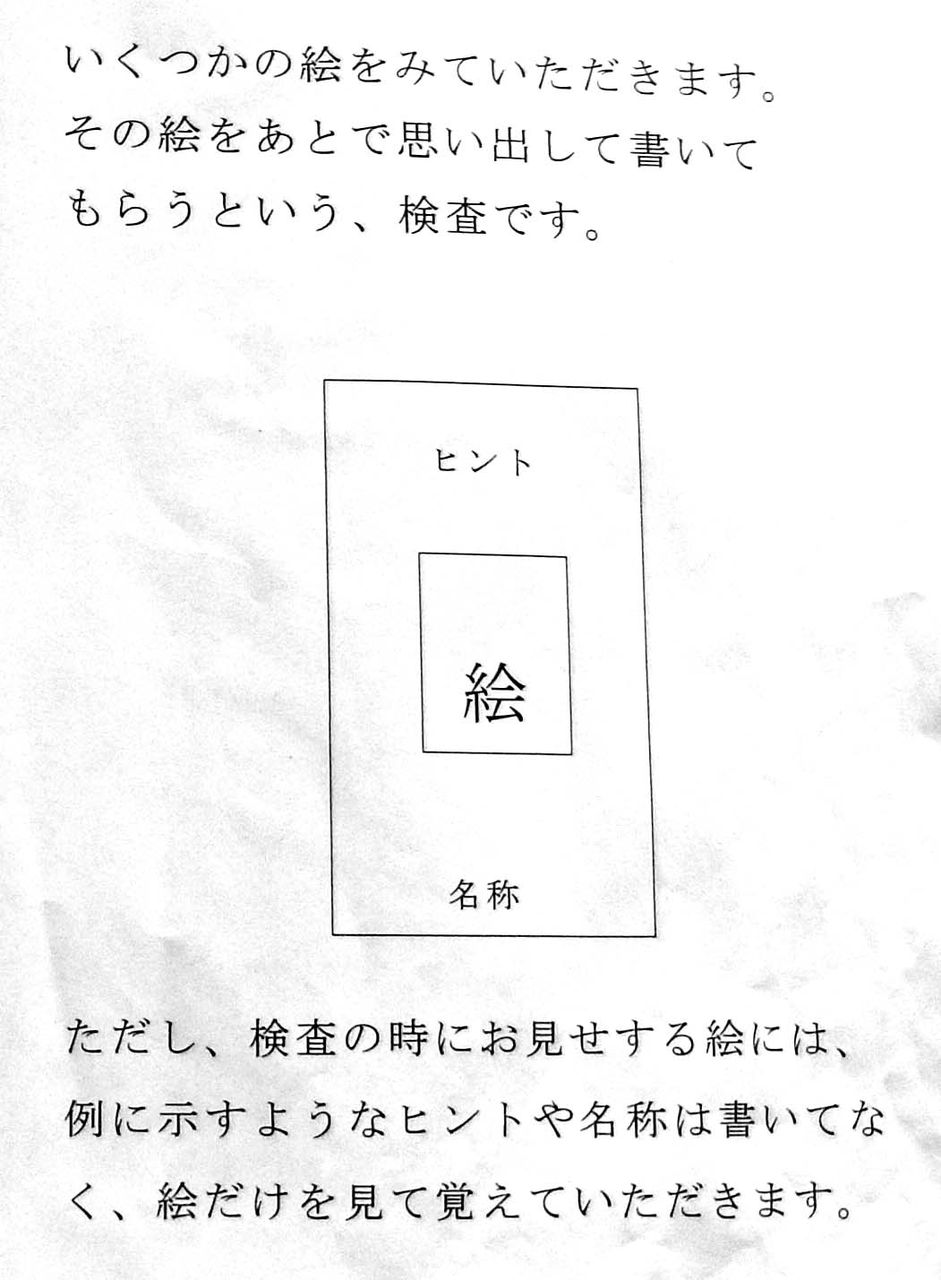 いくつかの絵をみていただきます。
その絵をあとで思い出して書いて
もらうという、検査です。
ヒント
絵
名称
ただし、検査の時にお見せする絵には、
例に示すようなヒントや名称は書いてな
く、絵だけを見て覚えていただきます。